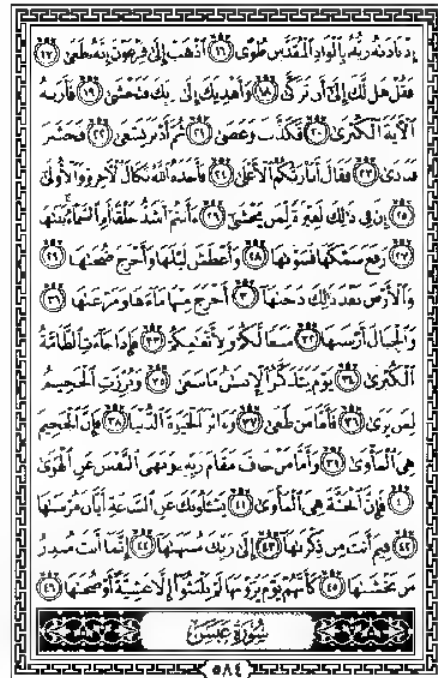 إِذْ نَادَىٰهُ رَبُّهُۥ بِٱلْوَادِ ٱلْمُقَدَّسِ طُوًى ١٦ ٱذْهَبْ إِلَىٰ فِرْعَوْنَ إِنَّهُۥ طَغَىٰ ١٧
فَقُلْ هَل لَّكَ إِلَىٰٓ أَن تَزَكَّىٰ ١٨ وَأَهْدِيَكَ إِلَىٰ رَبِّكَ فَتَخْشَىٰ ١٩ فَأَرَىٰهُ
ٱلْءَايَةَ ٱلْكُبْرَىٰ ٢٠ فَكَذَّبَ وَعَصَىٰ ٢١ ثُمَّ أَدْبَرَ يَسْعَىٰ ٢٢ فَحَشَرَ
فَنَادَىٰ ٢٣ فَقَالَ أَنَا۠ رَبُّكُمُ ٱلْأَعْلَىٰ ٢٤ فَأَخَذَهُ ٱللَّهُ نَكَالَ ٱلْءَاخِرَةِ وَٱلْأُولَىٰٓ
٢٥ إِنَّ فِى ذَٰلِكَ لَعِبْرَةً لِّمَن يَخْشَىٰٓ ٢٦ ءَأَنتُمْ أَشَدُّ خَلْقًا أَمِ ٱلسَّمَآءُ ۚ بَنَىٰهَا
٢٧ رَفَعَ سَمْكَهَا فَسَوَّىٰهَا ٢٨ وَأَغْطَشَ لَيْلَهَا وَأَخْرَجَ ضُحَىٰهَا ٢٩
وَٱلْأَرْضَ بَعْدَ ذَٰلِكَ دَحَىٰهَآ ٣٠ أَخْرَجَ مِنْهَا مَآءَهَا وَمَرْعَىٰهَا ٣١
وَٱلْجِبَالَ أَرْسَىٰهَا ٣٢ مَتَٰعًا لَّكُمْ وَلِأَنْعَٰمِكُمْ ٣٣ فَإِذَا جَآءَتِ ٱلطَّآمَّةُ
ٱلْكُبْرَىٰ ٣٤ يَوْمَ يَتَذَكَّرُ ٱلْإِنسَٰنُ مَا سَعَىٰ ٣٥ وَبُرِّزَتِ ٱلْجَحِيمُ
لِمَن يَرَىٰ ٣٦ فَأَمَّا مَن طَغَىٰ ٣٧ وَءَاثَرَ ٱلْحَيَوٰةَ ٱلدُّنْيَا ٣٨ فَإِنَّ ٱلْجَحِيمَ
هِىَ ٱلْمَأْوَىٰ ٣٩ وَأَمَّا مَنْ خَافَ مَقَامَ رَبِّهِۦ وَنَهَى ٱلنَّفْسَ عَنِ ٱلْهَوَىٰ
٤٠ فَإِنَّ ٱلْجَنَّةَ هِىَ ٱلْمَأْوَىٰ ٤١ يَسْـَٔلُونَكَ عَنِ ٱلسَّاعَةِ أَيَّانَ مُرْسَىٰهَا
٤٢ فِيمَ أَنتَ مِن ذِكْرَىٰهَآ ٤٣ إِلَىٰ رَبِّكَ مُنتَهَىٰهَآ ٤٤ إِنَّمَآ أَنتَ مُنذِرُ
مَن يَخْشَىٰهَا ٤٥ كَأَنَّهُمْ يَوْمَ يَرَوْنَهَا لَمْ يَلْبَثُوٓا۟ إِلَّا عَشِيَّةً أَوْ ضُحَىٰهَا ٤٦
سُورَةُ عَبَسَ
٥٨٤